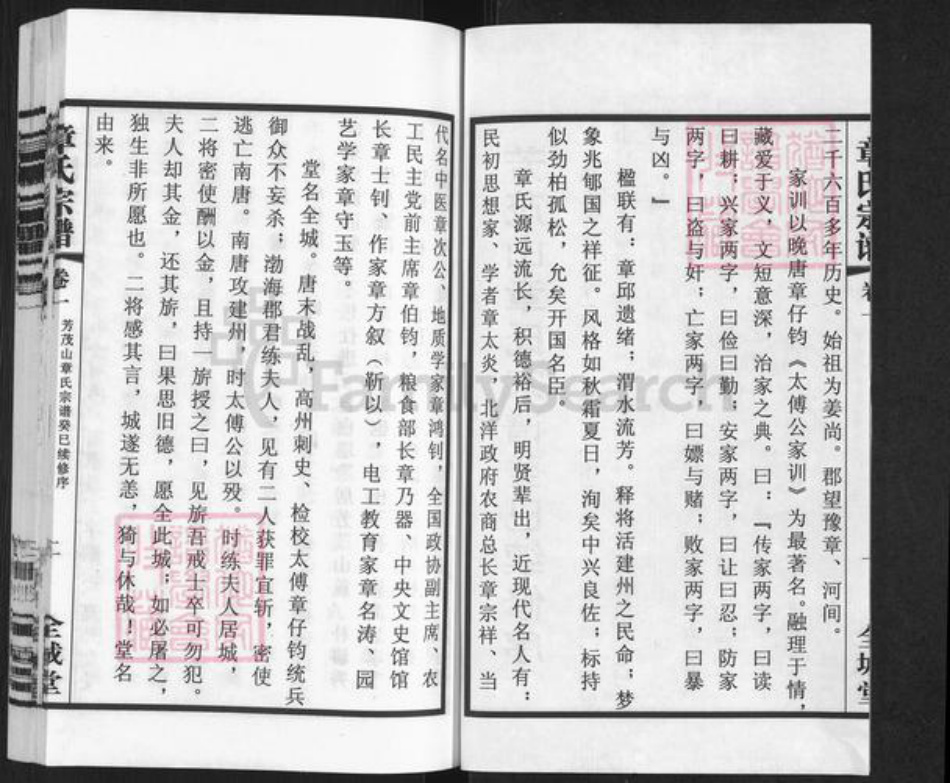 二千六百多年历史。始祖为姜尚。郡望豫章、河间。
家训以晚唐章仔钧《太傅公家训》为最著名。融理于情，
藏爱于义，文短意深，治家之典。曰：『传家两字，曰读
曰耕；兴家两字，曰俭曰勤；安家两字，曰让曰忍；防家
两字，曰盗与奸；亡家两字，曰嫖与赌；败家两字，曰暴
与凶。』
楹联有：章邱遗绪；渭水流芳。释将活建州之民命；梦
象兆郇国之祥征。风格如秋霜夏日，洵矣中兴良佐；标持
似劲柏孤松，允矣开国名臣。
章氏源远流长，积德裕后，明贤辈出，近现代名人有：
民初思想家、学者章太炎，北洋政府农商总长章宗祥、当
代名中医章次公、地质学家章鸿钊，全国政协副主席、农
工民主党前主席章伯钧，粮食部长章乃器、中央文史馆馆
长章士钊、作家章方叙（靳以），电工教育家章名涛、园
艺学家章守玉等。
堂名全城。唐末战乱，高州刺史、检校太傅章仔钧统兵
御众不妄杀；渤海郡君练夫人、见有二人获罪宜斩，密使
逃亡南唐。南唐攻建州，时太傅公以殁。时练夫人居城，
二将密使酬以金，且持一旂授之曰，见旂吾戒士卒可勿犯。
夫人却其金，还其旂，曰果思旧德，愿全此城；如必屠之，
独生非所愿也。二将感其言，城遂无恙，猗与休哉！堂名
由来。
章氏宗谱
卷一
芳茂山章氏宗谱癸巳续修序
二
全城堂
FamilySearch